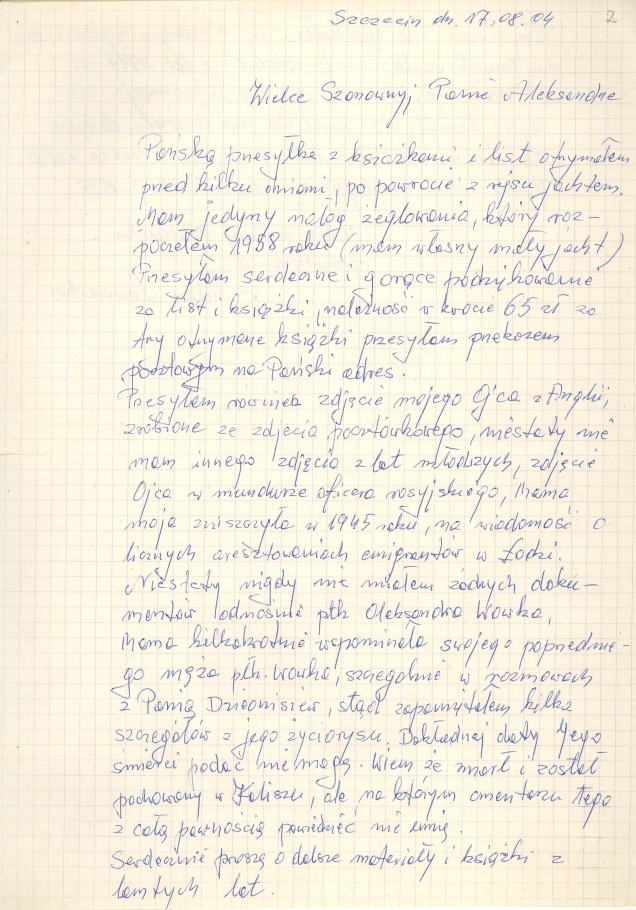 Szczecin dn. 17.08.04
2
Wielce Szanownyj Panie Aleksandrze
Pańską przesyłkę z książkami i list otrzymałem
przed kilku dniami, po powrocie z rejsu jachtem.
Mam jedyny nałóg żeglowania, który roz-
począłem 1958 roku (mam własny mały jacht)
Przesyłam serdeczne i gorące podziękowanie
za list i książki, należność w kwocie 65 zł za
trzy otrzymane książki przesyłam przekazem
pocztowym na Pański adres.
Przesyłam również zdjęcie mojego Ojca z Anglii,
zrobione ze zdjęcia pocztówkowego, niestety nie
mam innego zdjęcia z lat młodszych, zdjęcie
Ojca w mundurze oficera rosyjskiego, Mama
moja zniszczyła w 1945 roku, na wiadomość o
licznych aresztowaniach emigrantów w Łodzi.
Niestety nigdy nie miałem żadnych doku-
mentów odnośnie płk Oleksandra Wowka,
Mama kilkakrotnie wspominała swojego poprzednie-
go męża płk. Wowka, szczególnie w rozmowach
z Panią Dzieonisiew, stąd zapamiętałem kilka
szczegółów z jego życiorysu. Dokładnej daty Jego
śmierci podać nie mogę. Wiem że zmarł i został
pochowany w Kaliszu, ale na którym cmentarzu tego
z całą pewnością powiedzieć nie umię.
Serdecznie proszę o dalsze materiały i książki z
tamtych lat.